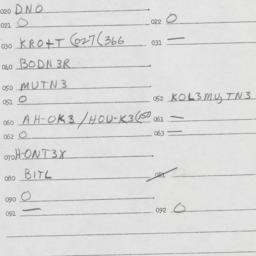 020 DNO
021 O 022 O
030 KRO+T (027(366 031 —
040 BODN3R
050 MUTN3
051 O 052 KOL3MUJTN3
060 AH-OK3/HOU-K3(050 061 —
062 O 063 —
070 HONT3X
080 BITL 081
090 O
091 — 092 O